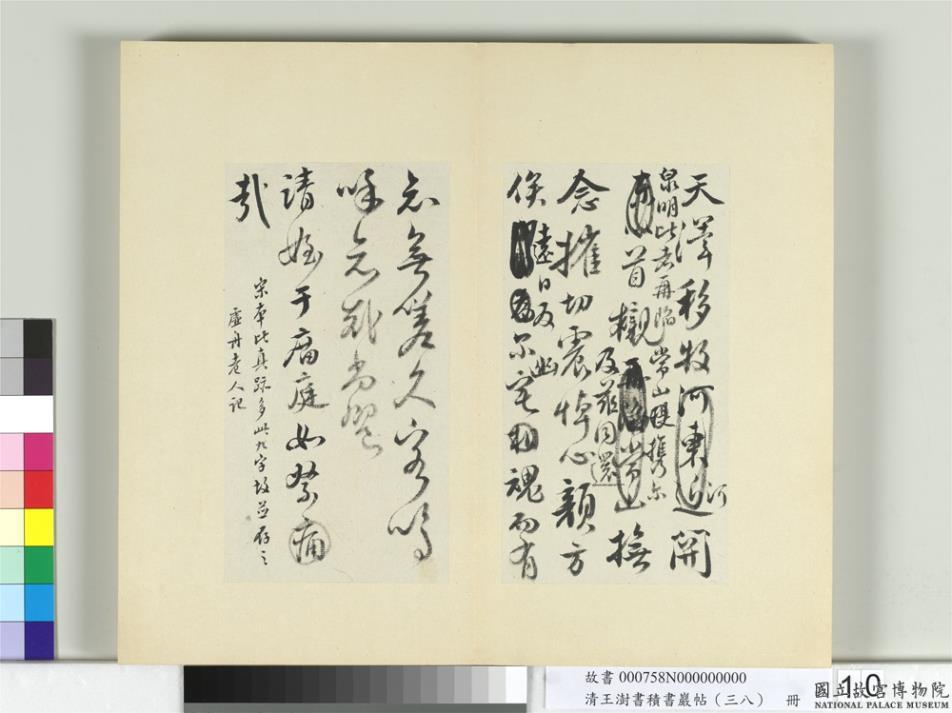 天澤移牧河東近河關
泉明比者再陷常山提攜爾
首櫬及茲同還撫
念摧切震悼心顏方
俟遠日卜爾幽宅魂而有
知無嗟久客嗚
呼哀哉尚饗
請姪于虜庭如痛
哉
宋本比真跡多此九字故並存之
虛舟老人記
故書 000758N000000000
清王澍書積書巖帖(三八) 冊
10
國立故宮博物院
NATIONAL PALACE MUSEUM